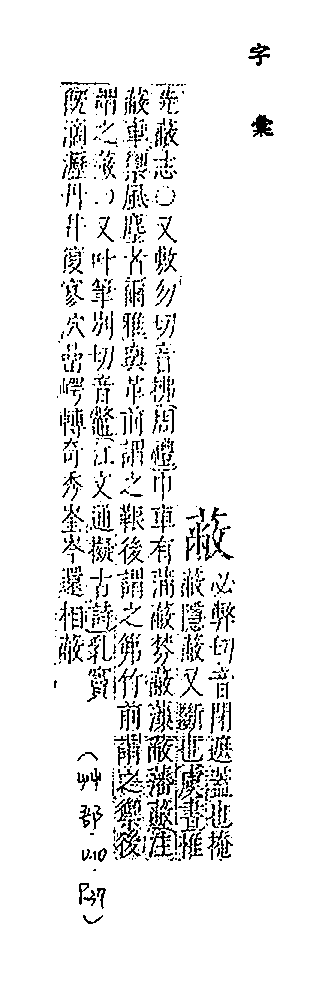 字彙
蔽
必弊切音閉遮蓋也掩
蔽隱蔽又斷也虞書惟
先蔽志○又敷勿切音拂周禮巾車有蒲蔽棼蔽藻蔽藩蔽注
蔽車禦風塵者爾雅輿革前謂之鞎後謂之笰竹前謂之禦後
謂之蔽○又叶筆別切音鷩江文通擬古詩乳竇
既滴瀝丹井復寥泬嵒崿轉奇秀崟岑還相蔽
(艸部.U.10.P.37)